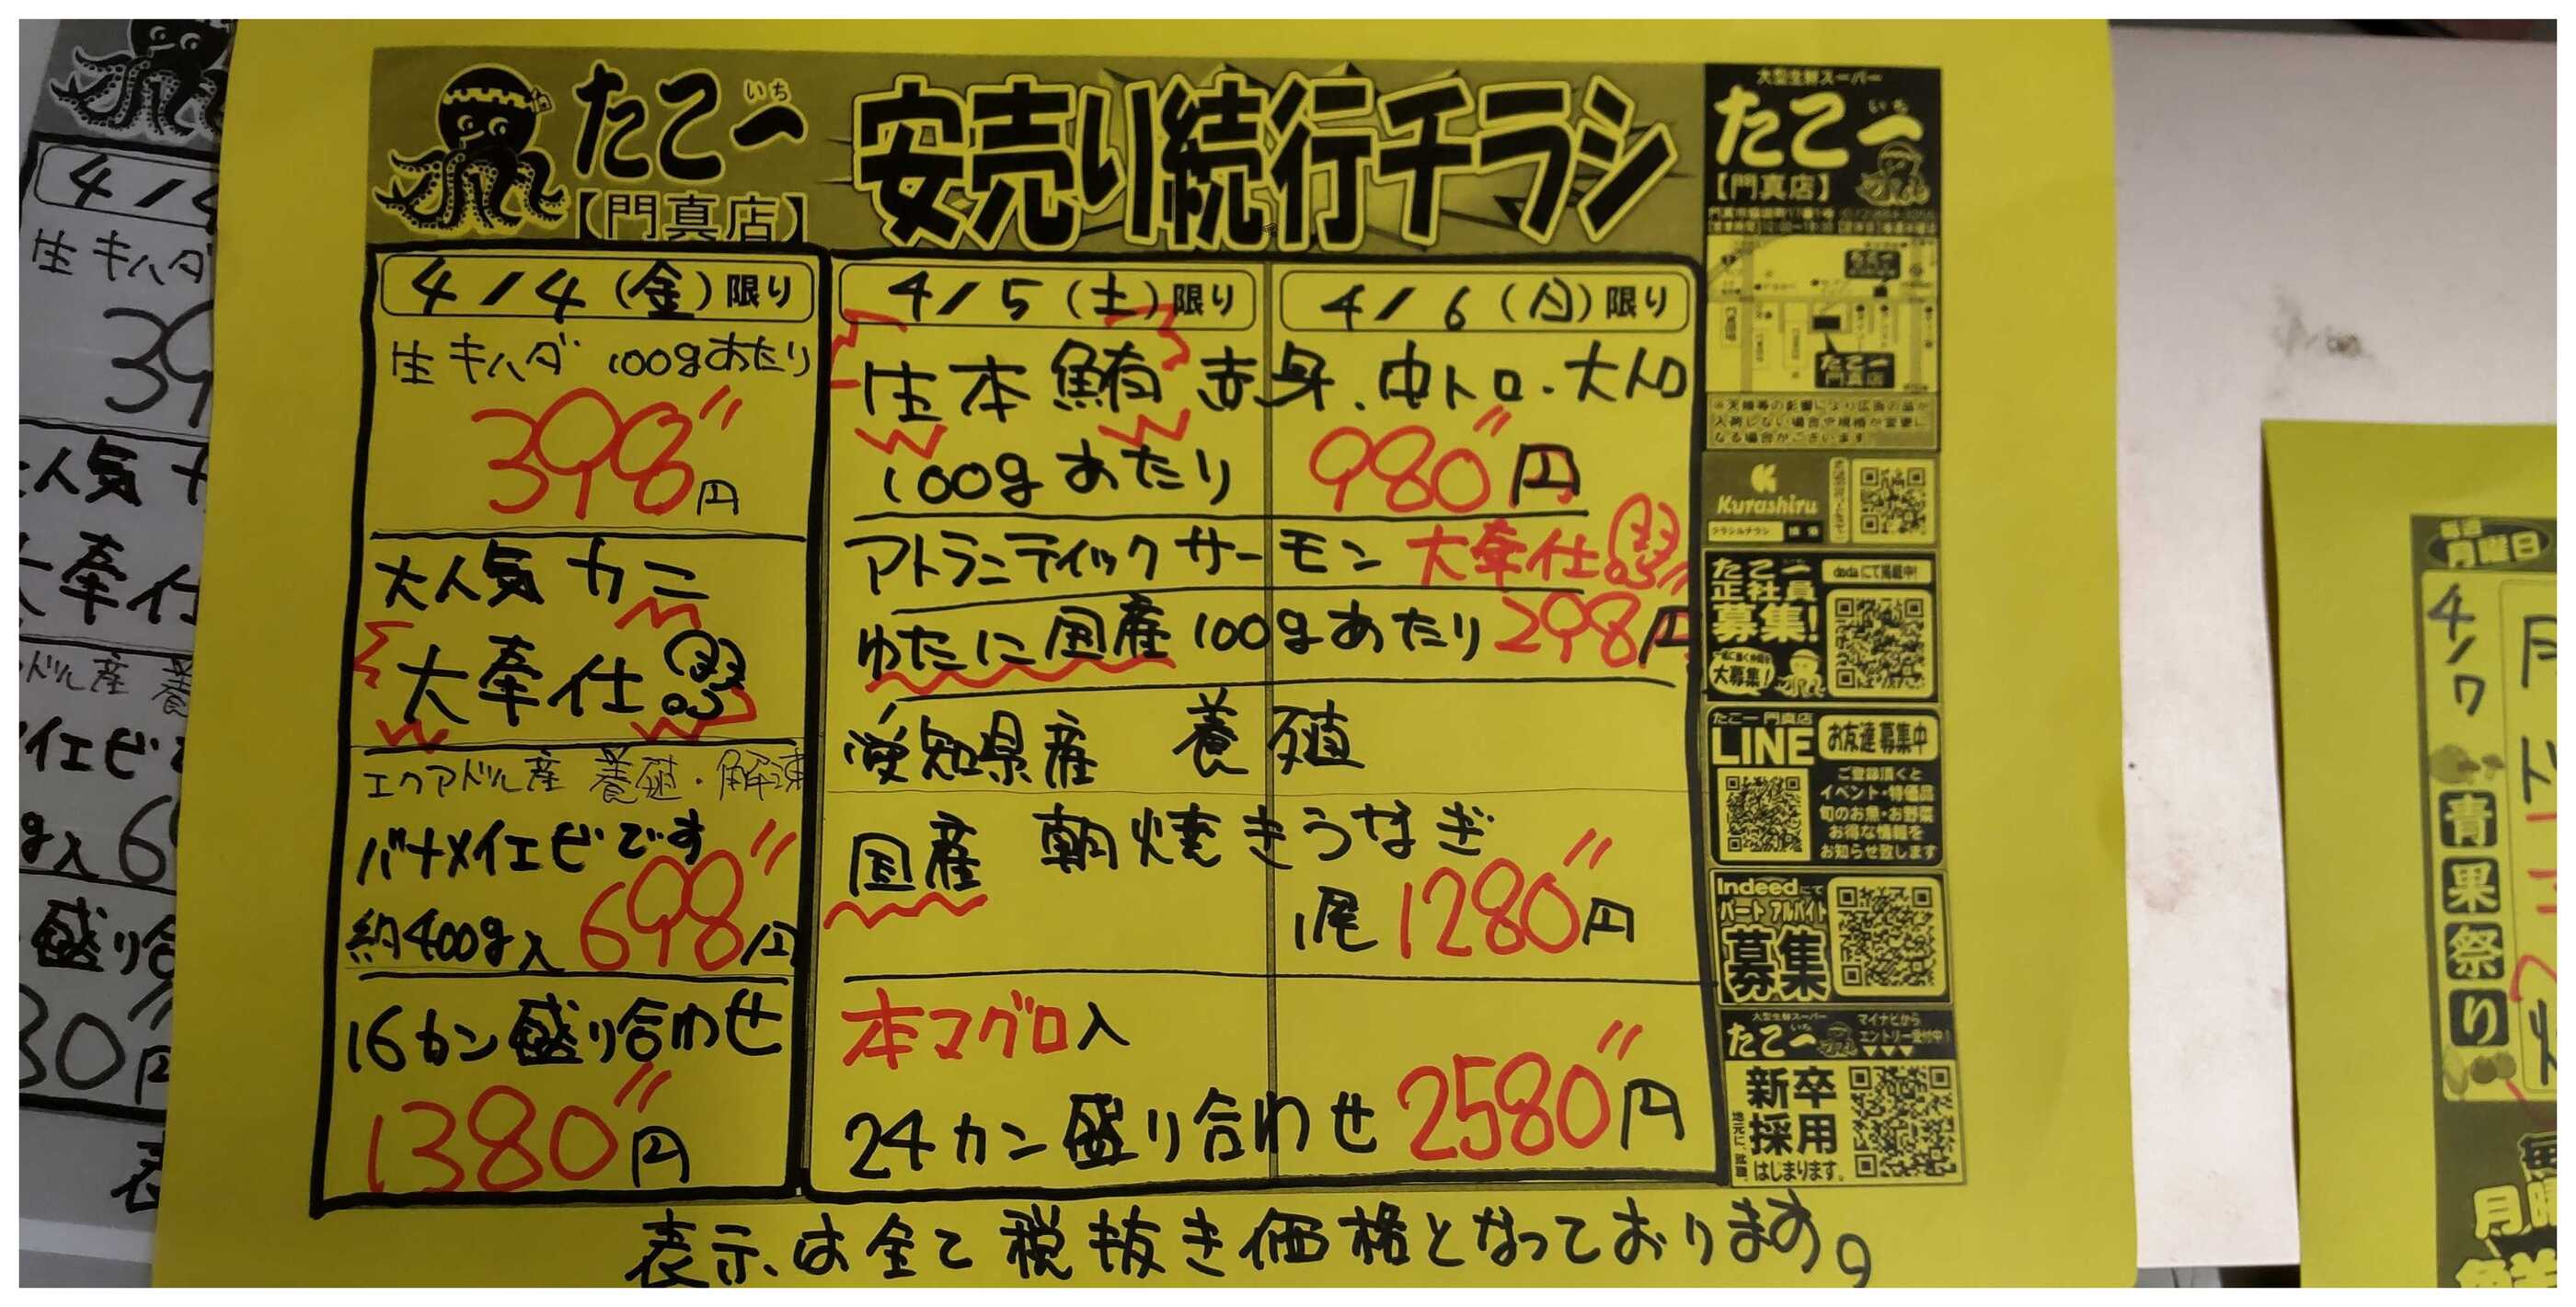 たこ一
いち
【門真店】
安売り続行チラシ
4/4(金)限り
生キハダ 100gあたり
398円
大人気カニ
大奉仕
エクアドル産 養殖・解凍
バナメイエビです
約400g入 698円
16カン盛り合わせ
1380円
4/5(土)限り
4/6(日)限り
生本鮪 赤身、中トロ・大トロ
100gあたり 980円
アトランティックサーモン 大奉仕
ゆたに国産 100gあたり 298円
愛知県産 養殖
国産 朝焼きうなぎ
1尾 1280円
本マグロ入
24カン盛り合わせ 2580円
表示は全て税抜き価格となっております。
大型生鮮スーパー
たこ一
いち
【門真店】
たこ一
門真店
※天候等の影響により広告の品が
入荷しない場合や規格が変更に
なる場合がございます
Kurashiru
たこ一
正社員
募集!
dodaにて掲載中!
大募集!
たこ一 門真店
LINE
お友達募集中
ご登録頂くと
イベント・特価品
旬のお魚・お野菜
お得な情報を
お知らせ致します
Indeedにて
パート アルバイト
募集
大型生鮮スーパー
たこ一
いち
マイナビから
エントリー受付中!
新卒
採用
はじまります。
4/4
生キハダ
39
大人気カ
大奉仕
ドル産 養
イエビ
g入 6
盛り合
80円
表
毎週
月曜日
4/7
青果祭り